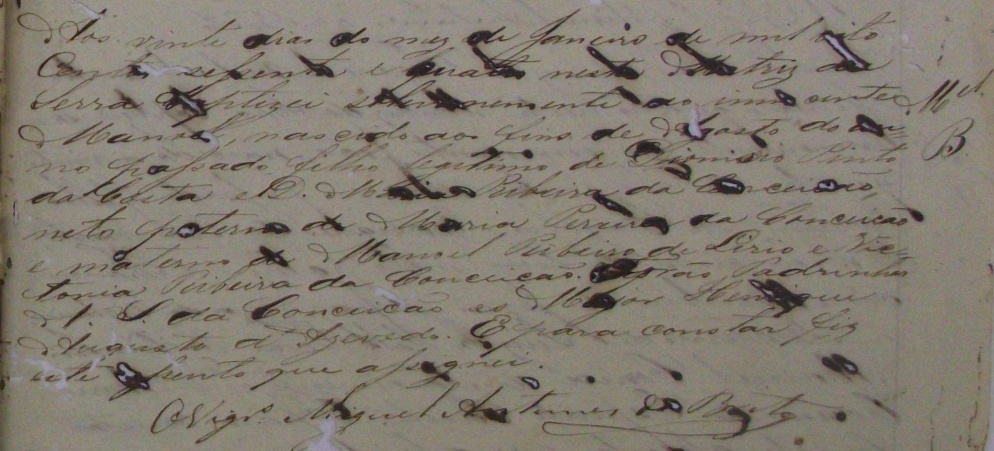 Aos vinte dias do mez de Janeiro de mil oito
Centos sessenta e quatro nesta Matriz da
Serra Baptizei solemnemente ao innocente
Mel.
Manoel, nascido aos fins de Agosto do an-
B
no passado filho legitimo de Dionisio Pinto
da Costa e D. Maria Ribeira da Conceicão,
neto paterno de Maria Pereira da Conceicão
e materno de Manoel Ribeiro de Lirio e Vic-
toria Ribeira da Conceicao. Padrinhos
da Conceicão e o Major Henrique
Augusto d'Azevedo. E para constar fiz
este assento que assignei.
O Vigro. Miguel Antunes de